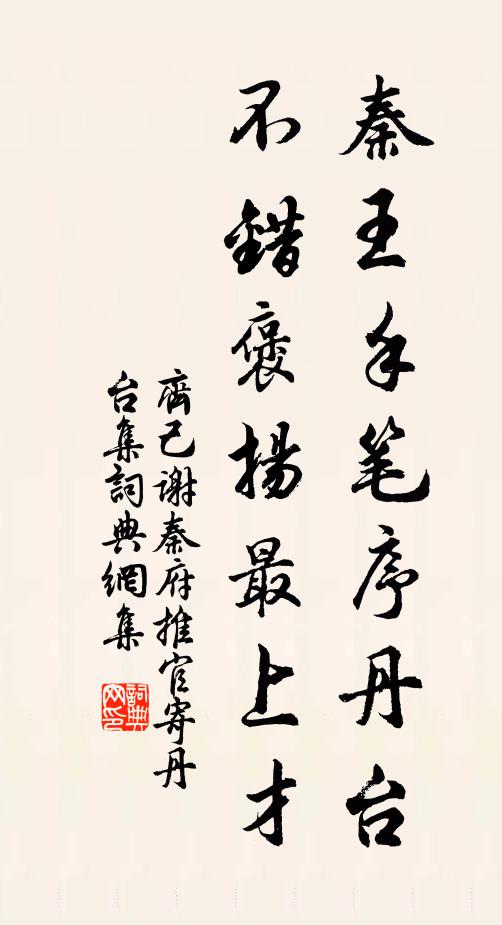 秦王手笔序丹台
不錯褒揚最上才
齊己谢秦府推官寄丹
台集詞典網集
詞典网印